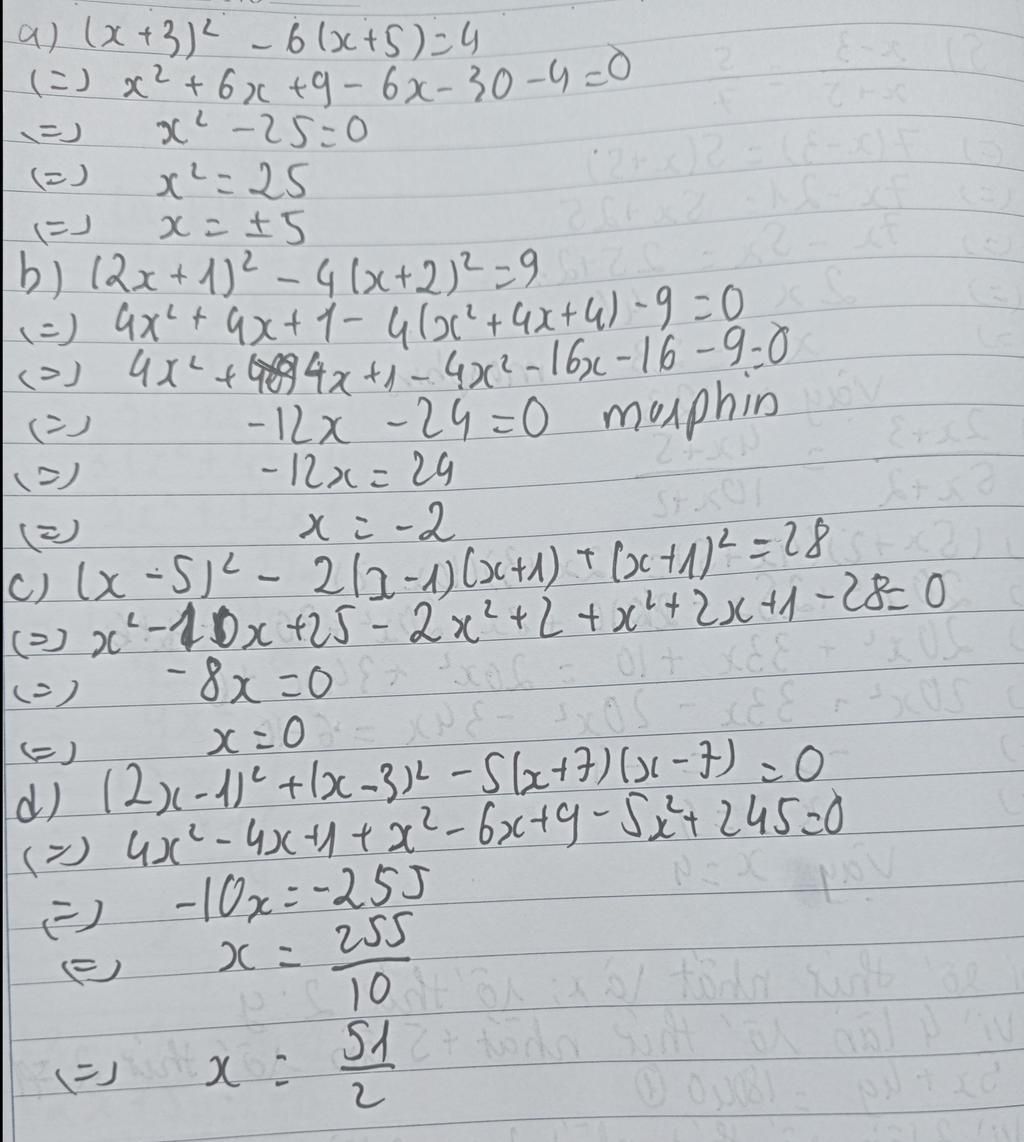 a) (x+3)² - 6(x+5)=4
(=) x² + 6x +9 - 6x - 30 - 4 = 0
(=) x² - 25=0
(=) x² = 25
(=) x = ±5
b) (2x+1)² - 4(x+2)² = 9
(=) 4x² + 4x + 1 - 4(x² + 4x + 4) - 9 = 0
(=) 4x² + 4x + 1 - 4x² - 16x - 16 - 9 = 0
(=) -12x - 24 = 0 morphin
(=) -12x = 24
(=) x = -2
c) (x - 5)² - 2(x-1)(x+1) + (x+1)² = 28
(=) x² - 10x + 25 - 2x² + 2 + x² + 2x + 1 - 28 = 0
(=) -8x = 0
(=) x = 0
d) (2x-1)² + (x-3)² - 5(x+7)(x-7) = 0
(=) 4x² - 4x + 1 + x² - 6x + 9 - 5x² + 245 = 0
(=) -10x = -255
(=) x = 255/10
(=) x = 51/2